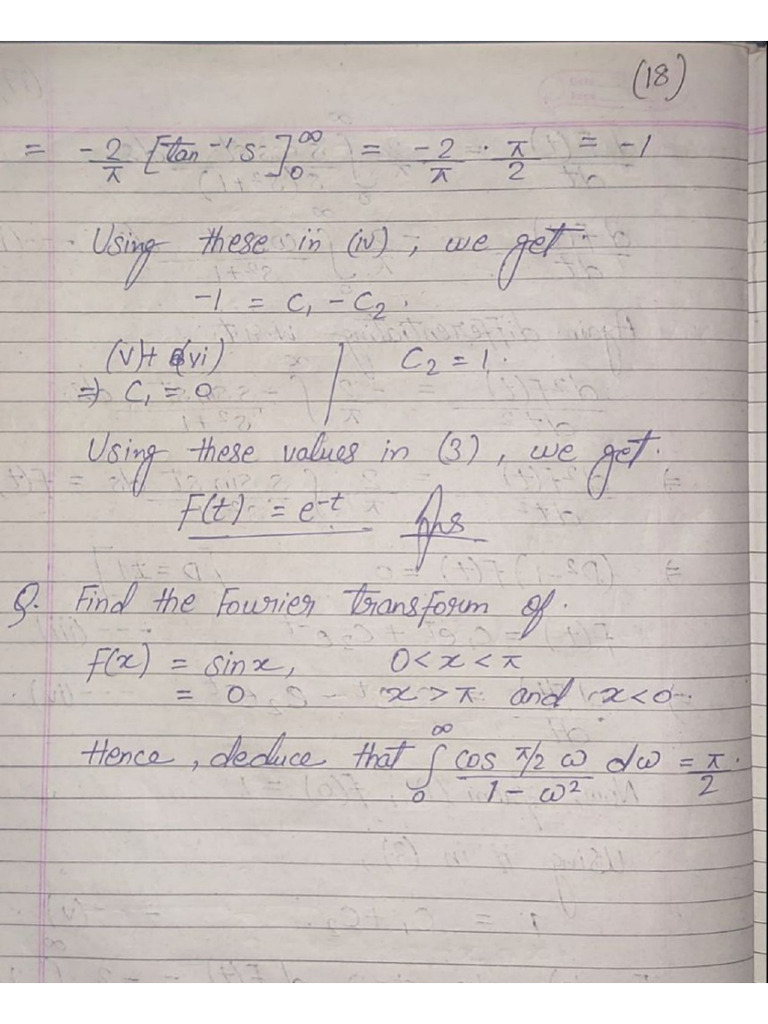 (18)
= -2/π [tan⁻¹ s]₀^∞ = -2/π · π/2 = -1
Using these in (iv), we get.
-1 = C₁ - C₂.
(v)+(vi) | C₂ = 1.
⇒ C₁ = 0
Using these values in (3), we get.
F(t) = e^-t Ans
Q. Find the Fourier transform of.
F(x) = sinx, 0<x<π
= 0 x>π and x<0.
Hence, deduce that ∫₀^∞ cos π/2 ω / 1-ω² dω = π/2.